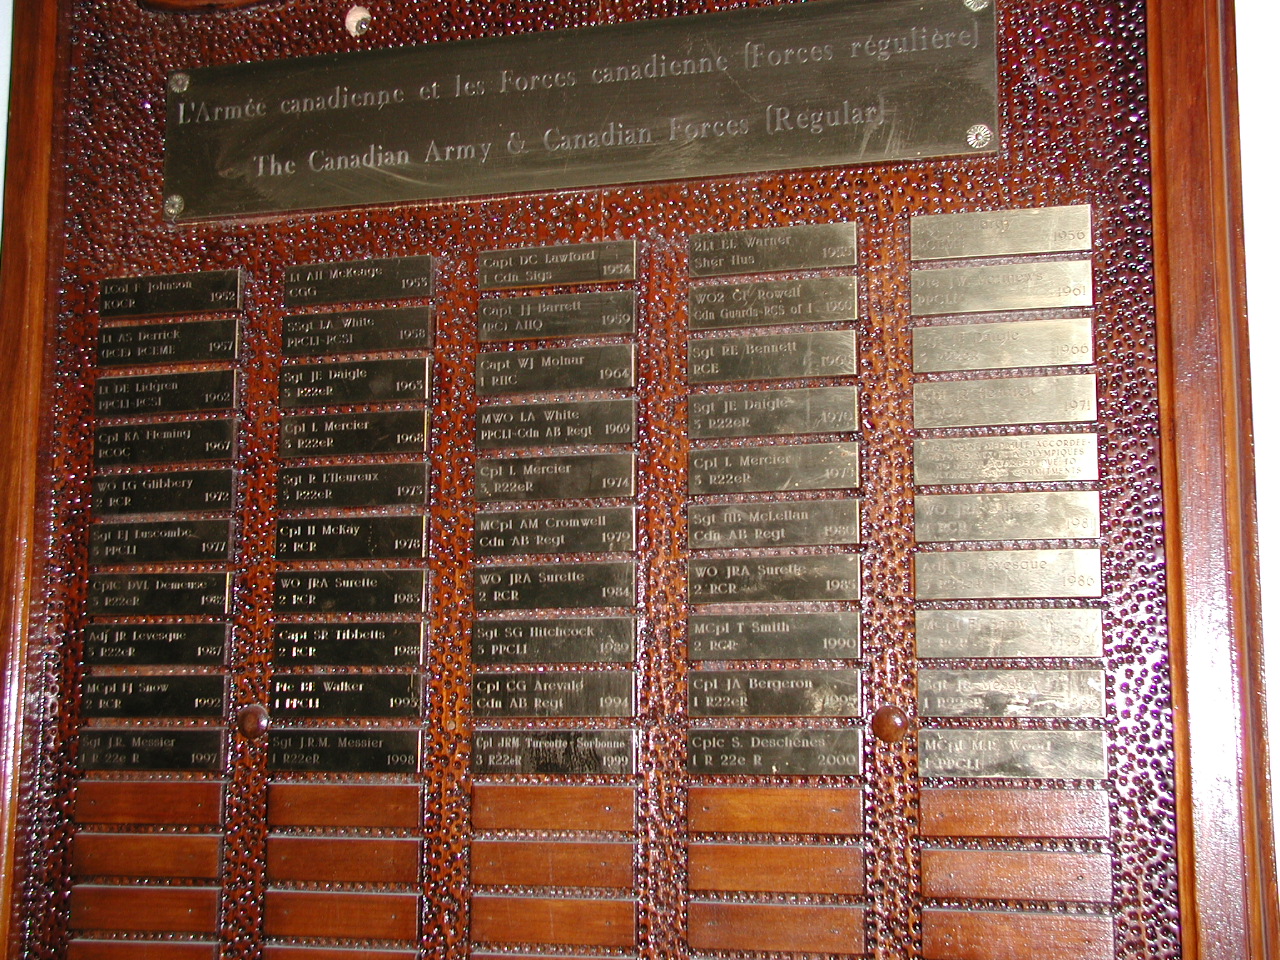 L'Armée canadienne et les Forces canadienne (Forces régulière)
The Canadian Army & Canadian Forces (Regular)
Johnson
RQCR 1952
Lt AH McKeage
CGG 1953
Capt DC Lawford
Cdn Sigs 1954
2Lt EE Warner
Sher Hus 1955
1956
Lt AS Derrick
RCEME 1957
SSgt LA White
PPCLI-RCSI 1958
Capt JJ Barrett
RCJ AHQ 1959
WO2 CF Rowell
Cdn Guards-RCS of I 1960
PPCLI 1961
Lt DE Lidgren
PPCLI-RCSI 1962
Sgt JE Daigle
3 R22eR 1963
Capt WJ Molnar
1 RHC 1964
Sgt RE Bennett
RCE 1965
Daigle
1966
Cpl KA Fleming
RCOC 1967
Cpl L Mercier
3 R22eR 1968
MWO LA White
PPCLI-Cdn AB Regt 1969
Sgt JE Daigle
3 R22eR 1970
1971
WO LG Gilbery
2 RCR 1972
Sgt R L'Heureux
3 R22eR 1973
Cpl L Mercier
3 R22eR 1974
Cpl L Mercier
3 R22eR 1975
ACCORDÉE
OLYMPIQUES
DUE TO
Sgt EJ Luscombe
3 PPCLI 1977
Cpl H McKay
2 RCR 1978
MCpl AM Cromwell
Cdn AB Regt 1979
Sgt HB McLellan
Cdn AB Regt
WO JRA Surette
2 RCR 1981
CplC DVL Demeuse
3 R22eR 1982
WO JRA Surette
2 RCR 1983
WO JRA Surette
2 RCR 1984
WO JRA Surette
2 RCR 1985
Adj JR Levesque
1986
Adj JR Levesque
3 R22eR 1987
Capt SR Tibbetts
2 RCR 1988
Sgt SG Hitchcock
3 PPCLI 1989
MCpl T Smith
2 RCR 1990
MCpl
MCpl FJ Snow
2 RCR 1992
BE Walker
1 PPCLI 1993
Cpl CG Arevalo
Cdn AB Regt 1994
Cpl JA Bergeron
1 R22eR 1995
Sgt
1 R22eR
Sgt J.R. Messier
1 R 22e R 1997
Sgt J.R.M. Messier
1 R22eR 1998
Cpl JRM Turcotte Sorbonne
3 R22eR 1999
Cplc S. Deschênes
1 R 22e R 2000
MCpl M.R. Wood
1 PPCLI